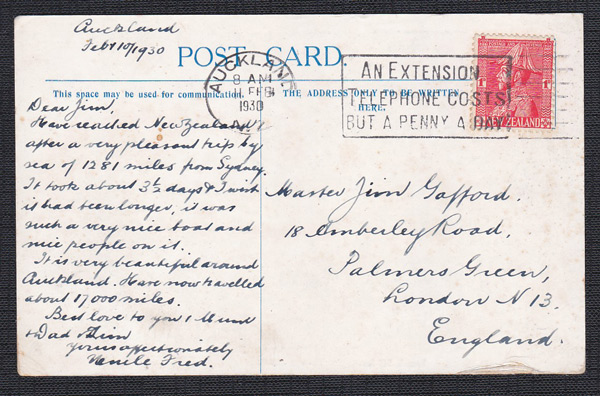 Auckland
Feb 10/1930
POST CARD.
This space may be used for communication.
THE ADDRESS ONLY TO BE WRITTEN
HERE.
AUCKLAND
8 AM
11 FEB
1930
N.Z.
AN EXTENSION
TELEPHONE COSTS
BUT A PENNY A DAY
1d 1d
NEW ZEALAND
Dear Jim,
Have reached New Zealand
after a very pleasant trip by
sea of 1281 miles from Sydney.
It took about 3½ days & I wish
it had been longer, it was
such a very nice boat and
nice people on it.
It is very beautiful around
Auckland. Have now travelled
about 17000 miles.
Best love to you, Mum
& Dad
yours affectionately
Fred.
Master Jim Gafford.
18 Amberley Road,
Palmers Green,
London N 13.
England.